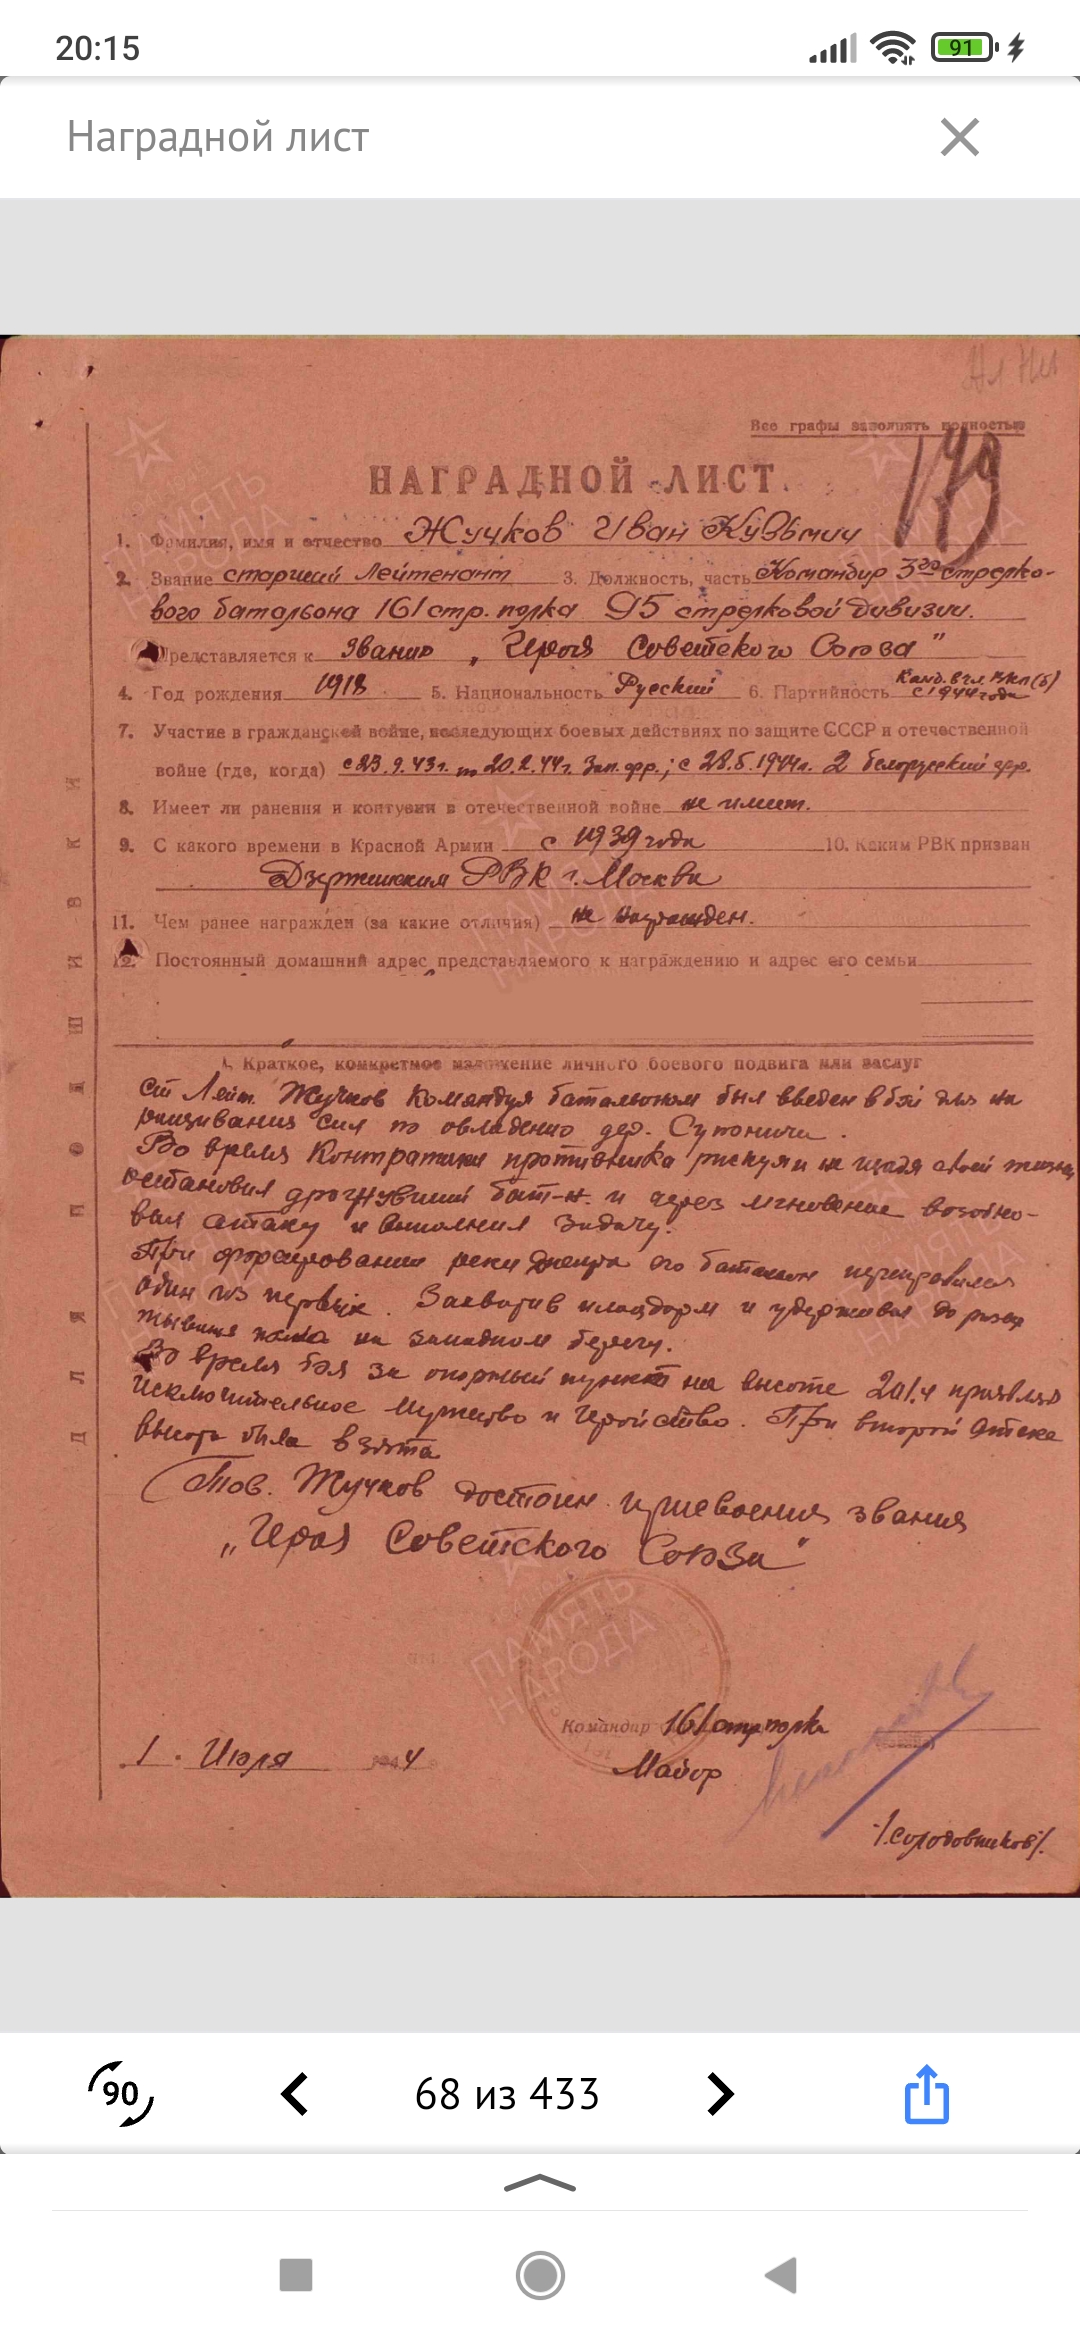 20:15
91
Наградной лист
Все графы заполнять полностью
179
НАГРАДНОЙ ЛИСТ
1. Фамилия, имя и отчество Жучков Иван Кузьмич
2. Звание старший лейтенант 3. Должность, часть Командир 3го стрелко-
вого батальона 161 стр. полка 95 стрелковой дивизии.
Представляется к званию „Героя Советского Союза"
4. Год рождения 1918 5. Национальность Русский 6. Партийность Канд. в чл. ВКП(б)
с 1944 года
7. Участие в гражданской войне, последующих боевых действиях по защите СССР и отечественной
войне (где, когда) с 23.9.43г. по 20.2.44г. Зап. фр.; с 28.5.1944г. 2 белорусский фр.
8. Имеет ли ранения и контузии в отечественной войне не имеет.
9. С какого времени в Красной Армии с 1939 года 10. Каким РВК призван
Дзержинским РВК г. Москва
11. Чем ранее награжден (за какие отличия) не награжден.
12. Постоянный домашний адрес представляемого к награждению и адрес его семьи
I. Краткое, конкретное изложение личного боевого подвига или заслуг
Ст Лейт. Жучков командуя батальоном был введен в бой для на
ращивания сил по овладению дер. Сутоничи.
Во время контратаки противника рискуя и не щадя своей жизни
остановил дрогнувший бат-н. и через мгновение возобно-
вил атаку и выполнил задачу.
При форсировании реки Днепра его батальон переправился
один из первых. Захватив плацдарм и удерживал до
полка на западном берегу.
Во время боя за опорный пункт на высоте 201.4 проявлял
исключительное мужество и геройство. При второй атаке
высота была взята
Тов. Жучков достоин присвоения звания
„Героя Советского Союза"
Командир 161 стр полка
1. Июля 1944 г
Майор
/Солодовников/.
ДЛЯ ПОДШИВКИ
ПАМЯТЬ НАРОДА
90
68 из 433